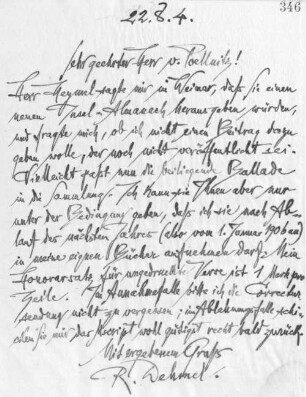 346
22.8.4.
Sehr geehrter Herr v. Poellnitz!
Herr Heymel sagte mir in Weimar, daß Sie einen
neuen Insel-Almanach herausgeben würden,
und fragte mich, ob ich nicht einen Beitrag dazu
geben wolle, der noch nicht veröffentlicht sei.
Vielleicht paßt nun die beiliegende Ballade
in die Sammlung. Ich kann sie Ihnen aber nur
unter der Bedingung geben, daß ich sie nach Ab-
lauf des nächsten Jahres (also vom 1. Januar 1906 an)
in meine eignen Bücher aufnehmen darf. Mein
Honorarsatz für ungedruckte Verse ist 1 Mark pro
Zeile. Im Annahmefalle bitte ich die Correctur-
sendung nicht zu vergessen; im Ablehnungsfalle schi-
cken Sie mir das Manuscript wohl gütigst recht bald zurück.
Mit ergebenem Gruß
R. Dehmel.